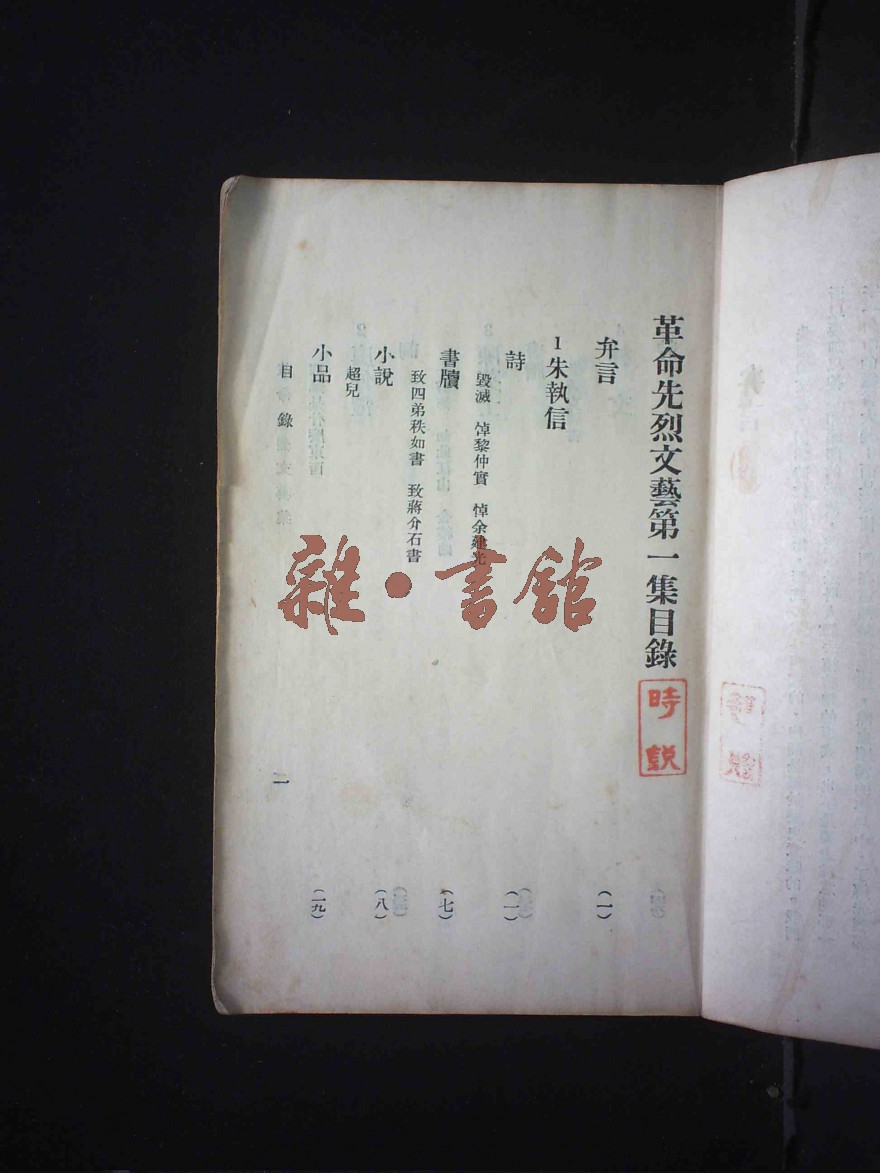 革命先烈文藝第一集目錄
時說
弁言 (一)
1 朱執信
詩 (一)
毀滅 悼黎仲實 悼余建光
書牘 (七)
致四弟秩如書 致蔣介石書
小說 (八)
超兒
小品 (一九)
目錄 一
雜·書館